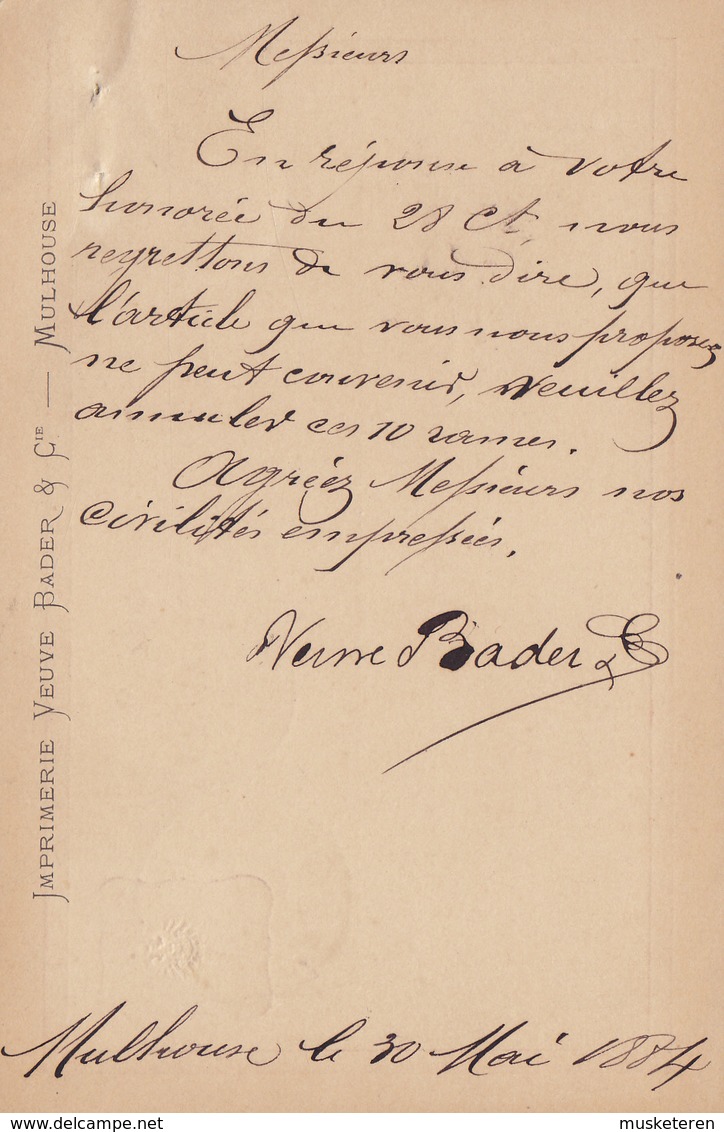 Messieurs
En réponse à votre
honorée du 28 ct, nous
regrettons de vous dire, que
l'article que vous nous proposez
ne peut convenir, veuillez
annuler ces 10 rames.
Agréez Messieurs nos
civilités empressées.
Veuve Bader & Cie
Mulhouse le 30 Mai 1884
IMPRIMERIE VEUVE BADER & CIE — MULHOUSE
musketeren